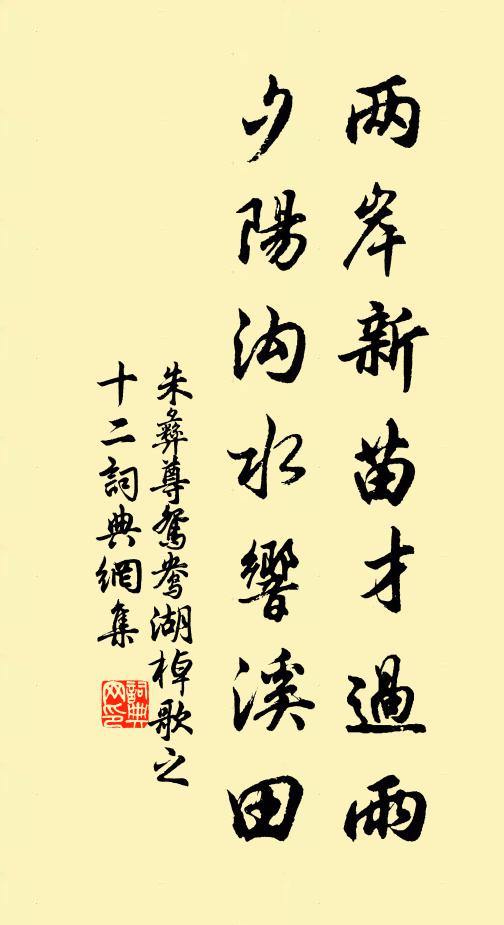 两岸新苗才過雨
夕陽沟水響溪田
朱彝尊鴛鴦湖棹歌之
十二詞典網集
詞典網印